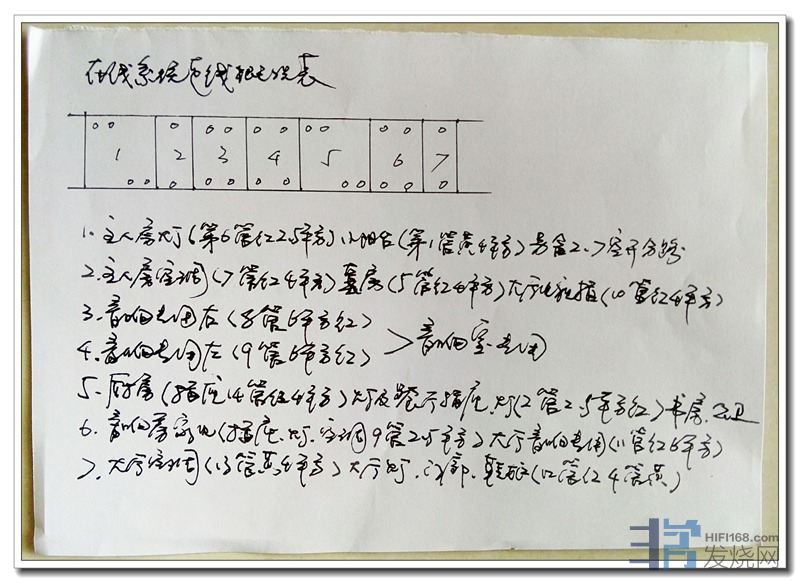 在线系统电线相无线表
1 2 3 4 5 6 7
1. 主人房灯(第6管红2.5平方)小阳台(第1管黄4平方)另留2.7空开分路
2. 主人房空调(7管红4平方)套房(5管红4平方)大厅电视插(10管红4平方)
3. 音响专用右(8管6平方红)
音响室专用
4. 音响专用左(9管6平方红)
5. 厨房(插座14管红4平方)灯及餐厅插座.灯(2管2.5平方红)书房.卫
6. 音响房家电(插座.灯.空调9管2.5平方)大厅音响专用(11管红6平方)
7. 大厅空调(13管黄4平方)大厅灯.(12管红4管黄)
HIFI168.com
发烧网